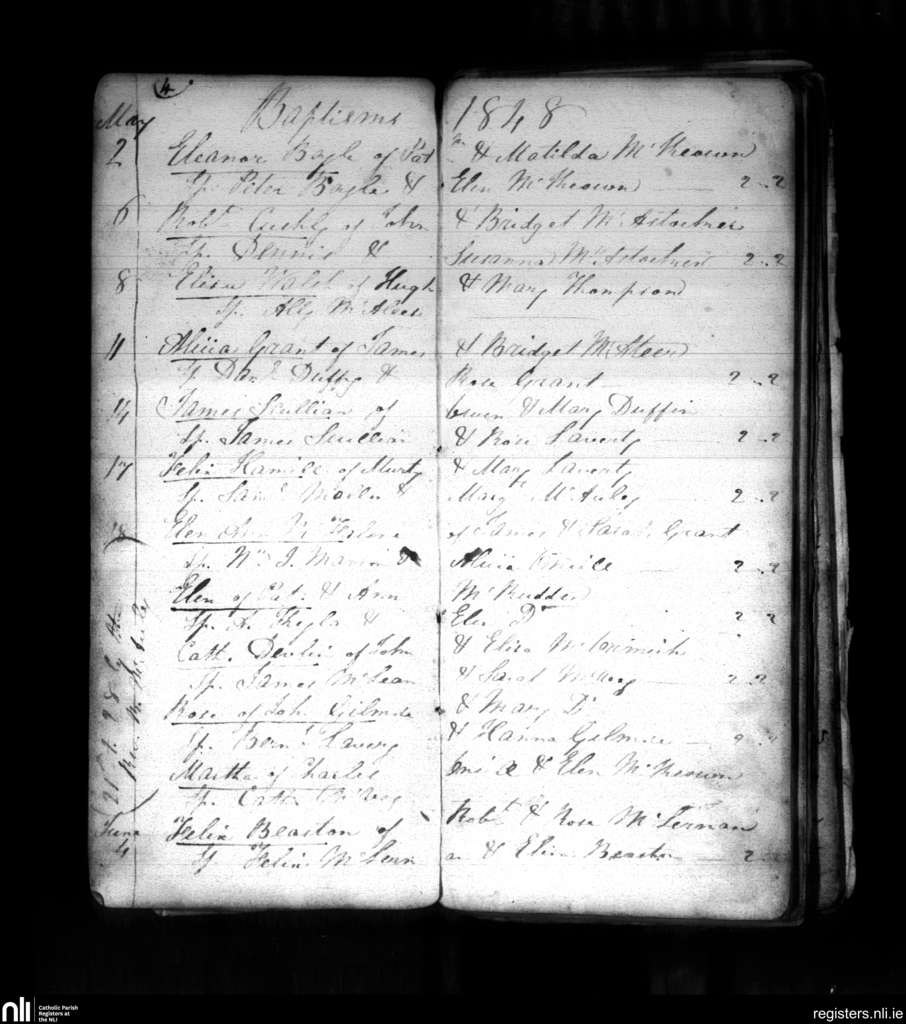 4
Baptisms 1848
May
2 Eleanor Bogle of Pat & Matilda McKeown
Sp. Peter Bogle & Elen McKeown 2..2
6 Robt of John & Bridget
Sp. Dennis & Susanna 2..2
8 Eliza Walsh of Hugh & Mary Thompson
Sp. Ally McAleese
11 Alicia Grant of James & Bridget McAteer
Sp Danl Duffy & Rose Grant 2..2
14 James Scullian of Owen & Mary Duffin
Sp. James Scullian & Rose Laverty 2..2
17 Felix Hamill of Murty & Mary Laverty
Sp. Saml & Margt McAuley 2..2
18 Elen of James & Sarah Grant
Sp. Wm J. & Alicia O'Neill 2..2
Elen of Pat: & Ann McRudden
Sp. A. & Elen Do 2..2
Cath. Devlin of John & Eliza McCormick
Sp. James McLean & Sarah 2..2
Rose of Joh. Gilmore & Mary Do
Sp. Bernd Lavery & Hanna Gilmore 2..2
Martha of Charles & Elen McKeown
Sp. Cath:
June
4 Felix Beaston of Robt & Rose McLernan
Sp Felix McLernan & Eliza Beaston 2..2
nli Catholic Parish
Registers at
the NLI
registers.nli.ie